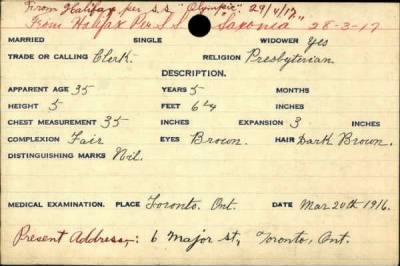 From Halifax per s.s. "Olympic". 29/4/17
From Halifax Per S.S. "Saxonia" 28-3-17
MARRIED SINGLE WIDOWER Yes
TRADE OR CALLING Clerk. RELIGION Presbyterian
DESCRIPTION.
APPARENT AGE 35 YEARS 5 MONTHS
HEIGHT 5 FEET 6¼ INCHES
CHEST MEASUREMENT 35 INCHES EXPANSION 3 INCHES
COMPLEXION Fair EYES Brown. HAIR Dark Brown.
DISTINGUISHING MARKS Nil.
MEDICAL EXAMINATION. PLACE Toronto. Ont. DATE Mar 20th 1916.
Present Address,- 6 Major St, Toronto, Ont.